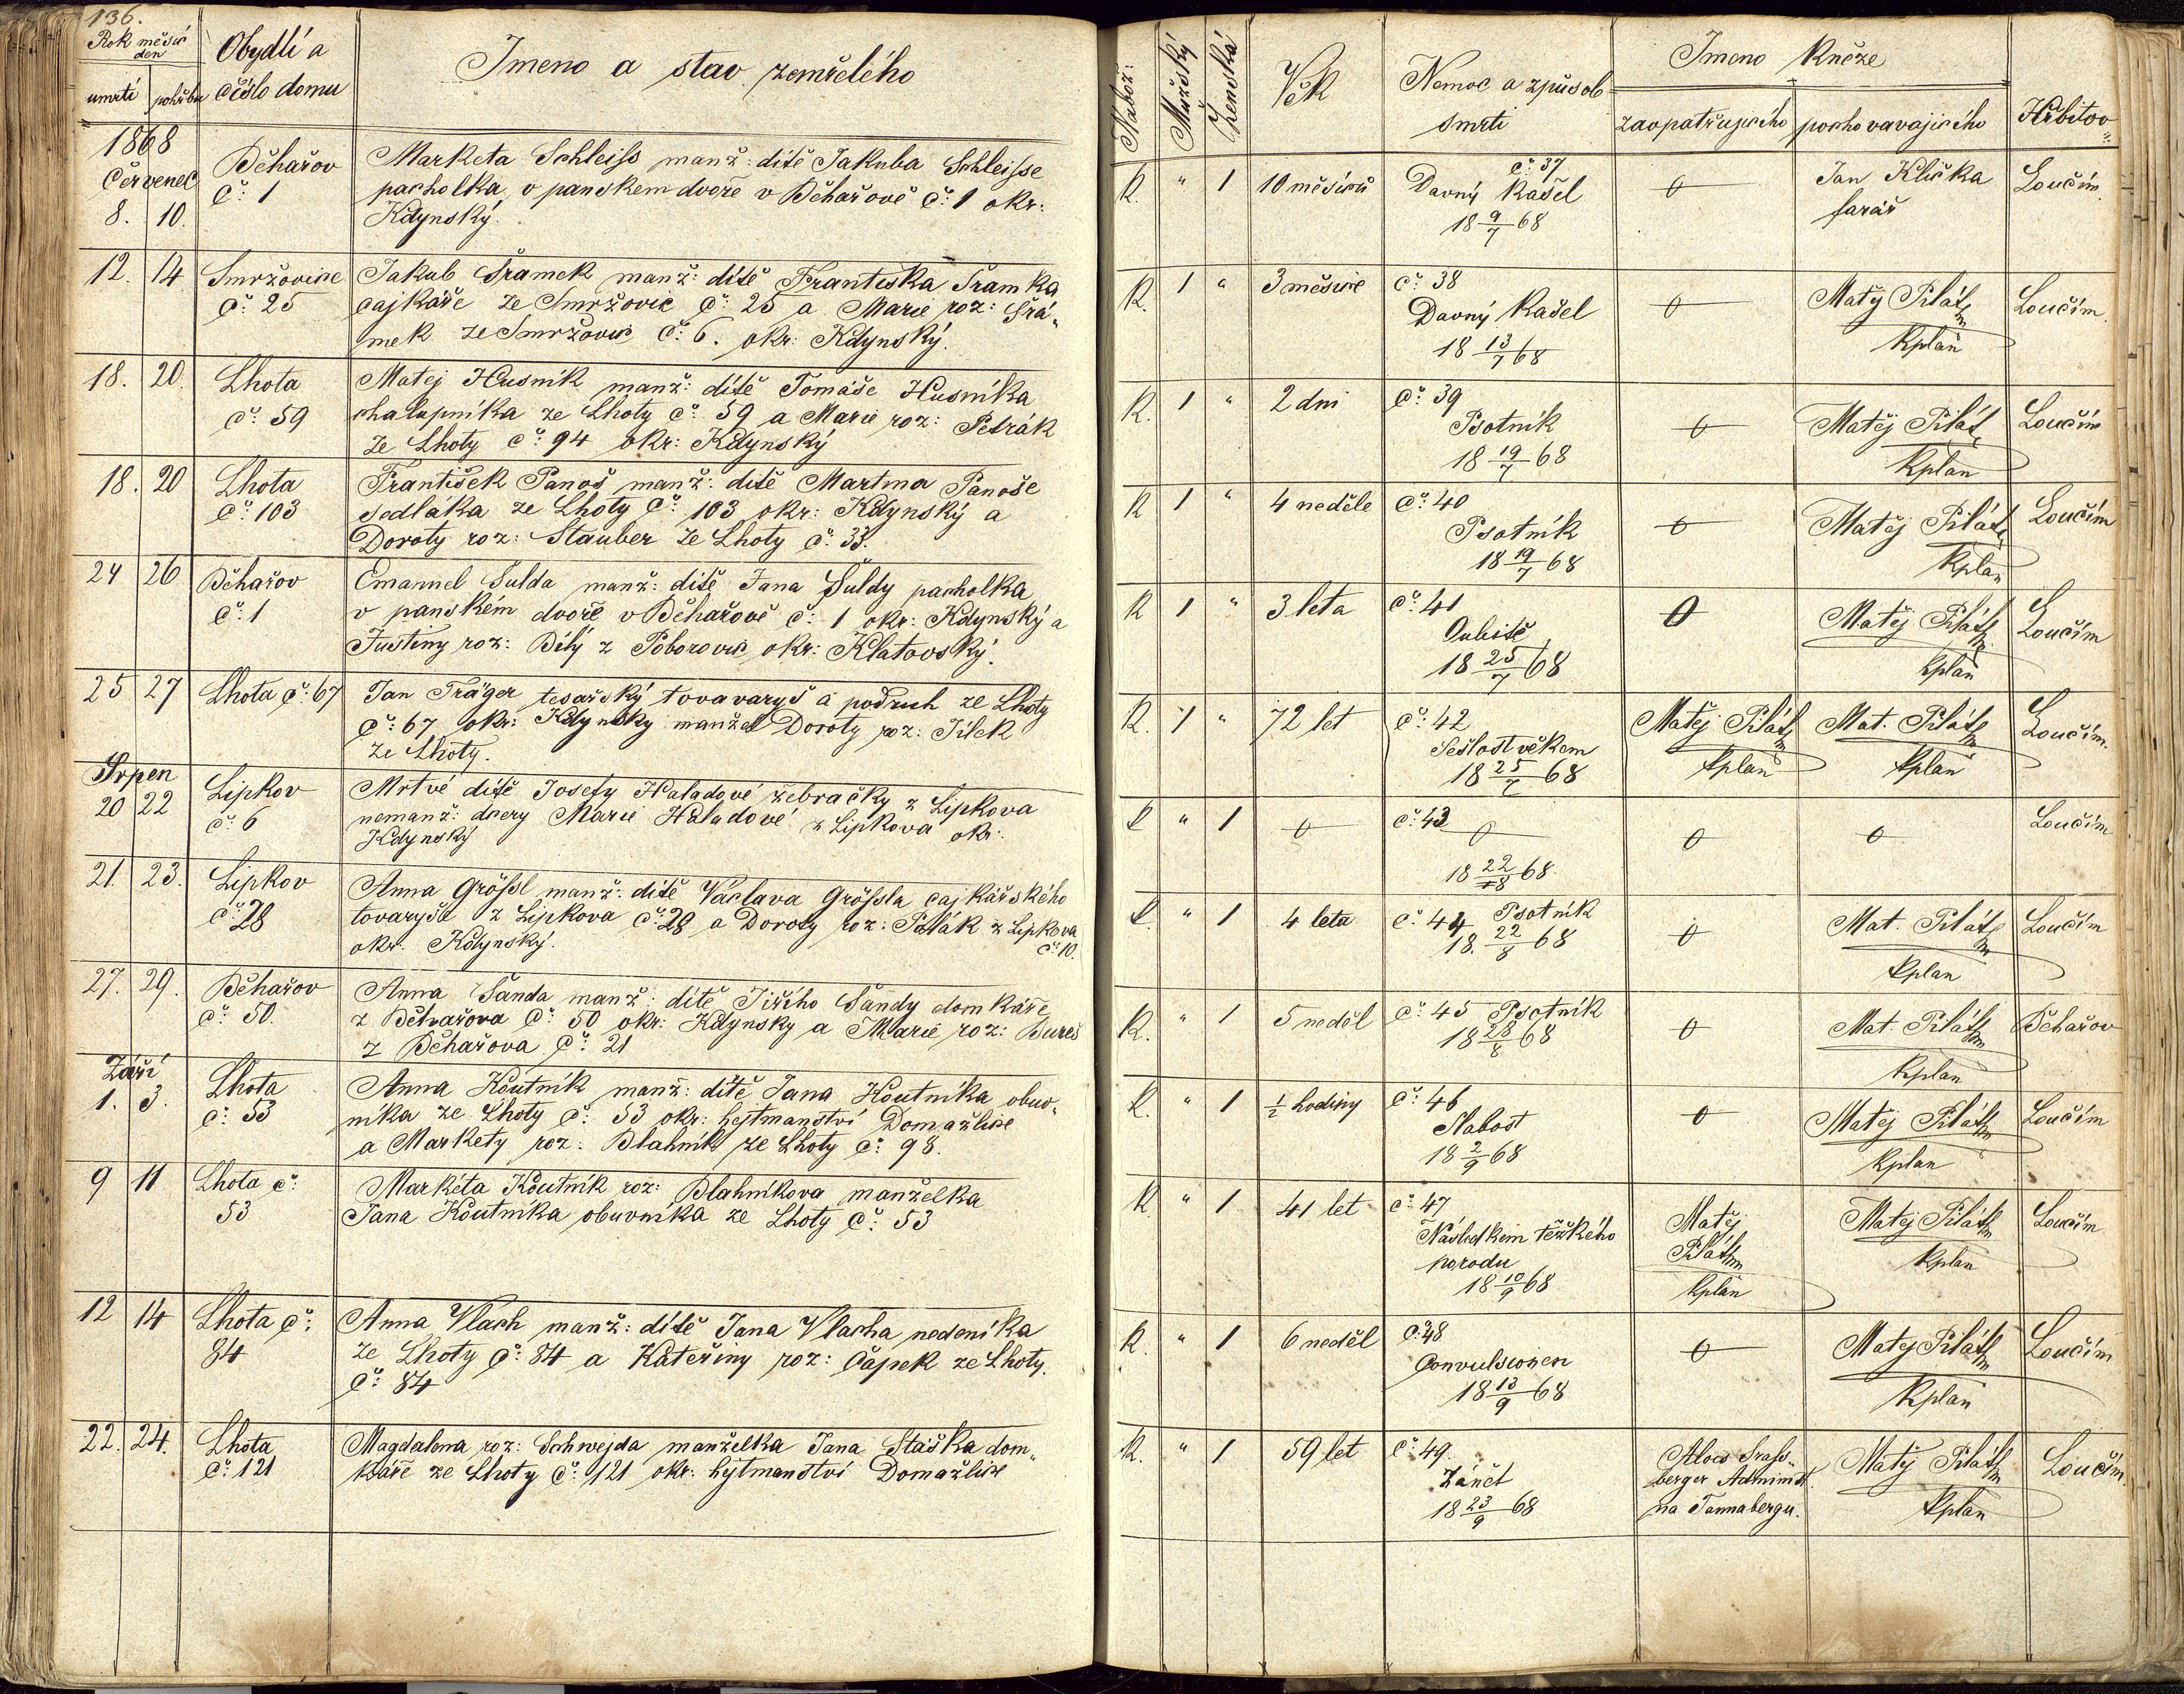 136.
Rok měsíc
den
umrtí pohřbu
Obydlí a
číslo domu
Jmeno a stav zemřelého
1868
Červenec
8. 10.
Běhařov
č: 1
Marketa Schleiss manž: dítě Jakuba Schleisse
pacholka v panskem dvoře v Běhařově č: 1 okr:
Kdynský.
12. 14.
Smržovice
č: 25
Jakub Šramek manž: dítě Františka Šramka
cajkáře ze Smržovic č: 25 a Marie roz: Šrá„
mek ze Smržovic č: 6. okr: Kdynský.
18. 20.
Lhota
č: 59
Matej Husnik manž: dítě Tomáše Husníka
chalupníka ze Lhoty č: 59 a Marie roz: Petrák
ze Lhoty č: 94 okr: Kdynský
18. 20
Lhota
č: 103
František Panoš manž: dítě Martina Panoše
sedláka ze Lhoty č: 103 okr: Kdynský a
Doroty roz: Stauber ze Lhoty č: 33.
24 26
Běhařov
č: 1
Emanuel Šulda manž: dítě Jana Šuldy pacholka
v panském dvoře v Běhařově č: 1 okr: Kdynský a
Justiny roz: Bílý z Poborovic okr: Klatovský.
25 27
Lhota č: 67
Jan Träger tesařský tovavaryš a podruh ze Lhoty
č: 67 okr: Kdynsky manžel Doroty roz: Jílek
ze Lhoty.
Srpen
20 22
Lipkov
č: 6
Mrtvé dítě Josefy Haladové žebračky z Lipkova
nemanž: dcery Marie Haladové z Lipkova okr:
Kdynský
21. 23.
Lipkov
č: 28
Anna Grössl manž: dítě Václava Grössla cajkářského
tovaryše z Lipkova č: 28 a Doroty roz: Polák z Lipkova
okr. Kdynský. č: 10.
27. 29.
Běhařov
č: 50.
Anna Šanda manž: dítě Jiřího Šandy domkáře
z Běhařova č: 50 okr: Kdynsky a Marie roz: Bureš
z Běhařova č: 21
Září
1. 3.
Lhota
č: 53
Anna Koutník manž: dítě Jana Koutníka obuv„
nika ze Lhoty č: 53 okr: hejtmanství Domažlice
a Markety roz: Blahnik ze Lhoty č: 98.
9 11
Lhota č:
53
Markéta Koutník roz: Blahníkova manželka
Jana Koutníka obuvníka ze Lhoty č: 53
12 14
Lhota č:
84
Anna Vlach manž: dítě Jana Vlacha nedeníka
ze Lhoty č: 84 a Kateřiny roz: Čápek ze Lhoty.
č: 84
22. 24.
Lhota
č: 121
Magdalena roz: Schwejda manželka Jana Staška dom„
káře ze Lhoty č: 121 okr: hejtmanství Domažlice
Nábož:
Mužský
Ženská
Věk
Nemoc a způsob
smrti
Jmeno kněze
zaopatřujicího pochovavajicího
Hřbitov
R. " 1 10 měsíců
č: 37
Davný kašel
18 9/7 68
0
Jan Klička
farář
Loučim.
R. 1 " 3 měsíce
č: 38
Davný kašel
18 13/7 68
0
Matěj Pilát
kplan
Loučim.
R. 1 " 2 dni
č: 39
Psotník
18 19/7 68
0
Matěj Pilát
kplan
Loučím
R 1 " 4 neděle
č: 40
Psotník
18 19/7 68
0
Matěj Pilát
kplan
Loučím
R 1 " 3 leta
č: 41
18 25/7 68
0
Matěj Pilát
kplan
Loučím
R. 1 " 72 let
č: 42
Sešlost věkem
18 25/7 68
Matěj Pilát
kplan
Mat. Pilát
kplan
Loučím.
R " 1 0
č: 43 0
18 22/8 68.
0
0
Loučím
R. " 1 4 leta
č: 44 Psotník
18. 22/8 68
0
Mat. Pilát
kplan
Loučim
R. " 1 5 neděl
č: 45 Psotník
18 28/8 68
0
Mat. Pilát
kplan
Běhařov
R. " 1 1/2 hodiny
č: 46
Slabost
18 2/9 68
0
Matěj Pilát
kplan
Loučim
R. " 1 41 let
č: 47
Následkem těžkého
porodu
18 10/9 68
Matěj
Pilát
kplan
Matěj Pilát
kplan
Loučím
R. " 1 6 neděl
č: 48
Convulsionen
18 13/9 68
0
Matej Pilát
kplan
Loučím
R. " 1 59 let
č: 49.
Zánět
18 23/9 68
Alois Srass„
berger Administ.
na Tannabergu.
Matěj Pilát
kplan
Loučím